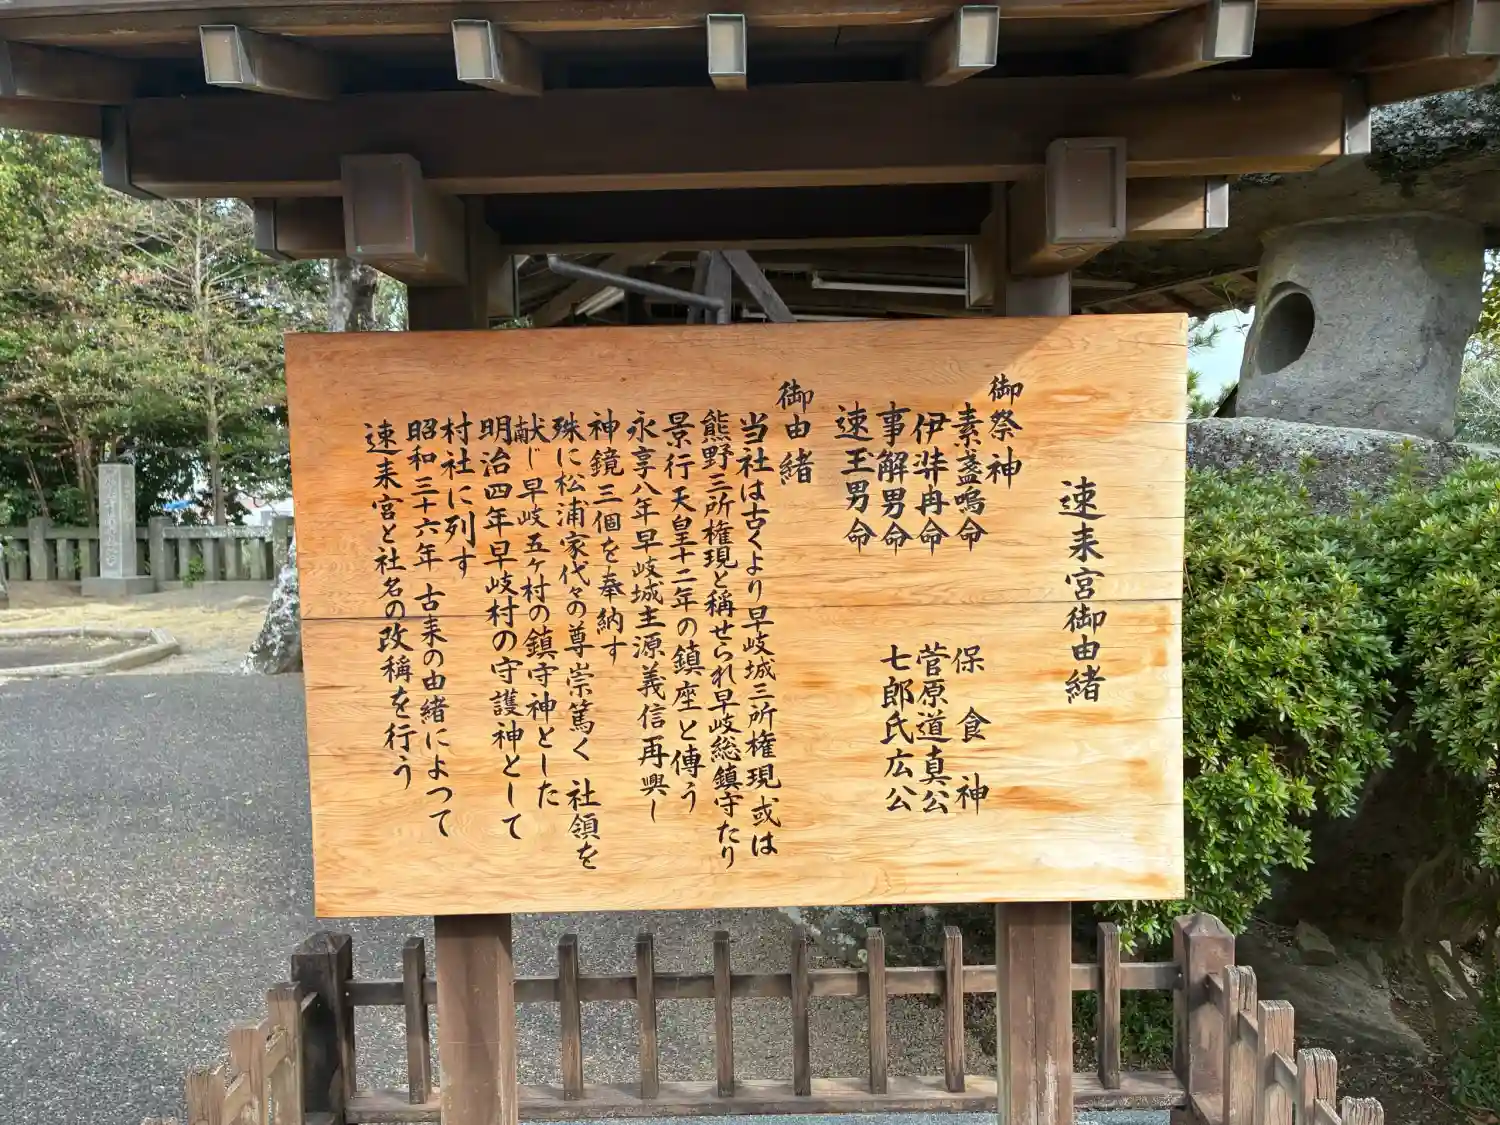 速来宮御由緒
御祭神
素盞嗚命
保食神
伊弉冉命
菅原道真公
事解男命
七郎氏広公
速玉男命
御由緒
当社は古くより早岐城三所権現或は
熊野三所権現と稱せられ早岐総鎮守たり
景行天皇十二年の鎮座と傳う
永享八年早岐城主源義信再興し
神鏡三個を奉納す
殊に松浦家代々の尊崇篤く社領を
献じ早岐五ヶ村の鎮守神とした
明治四年早岐村の守護神として
村社に列す
昭和三十六年古来の由緒によつて
速来宮と社名の改稱を行う